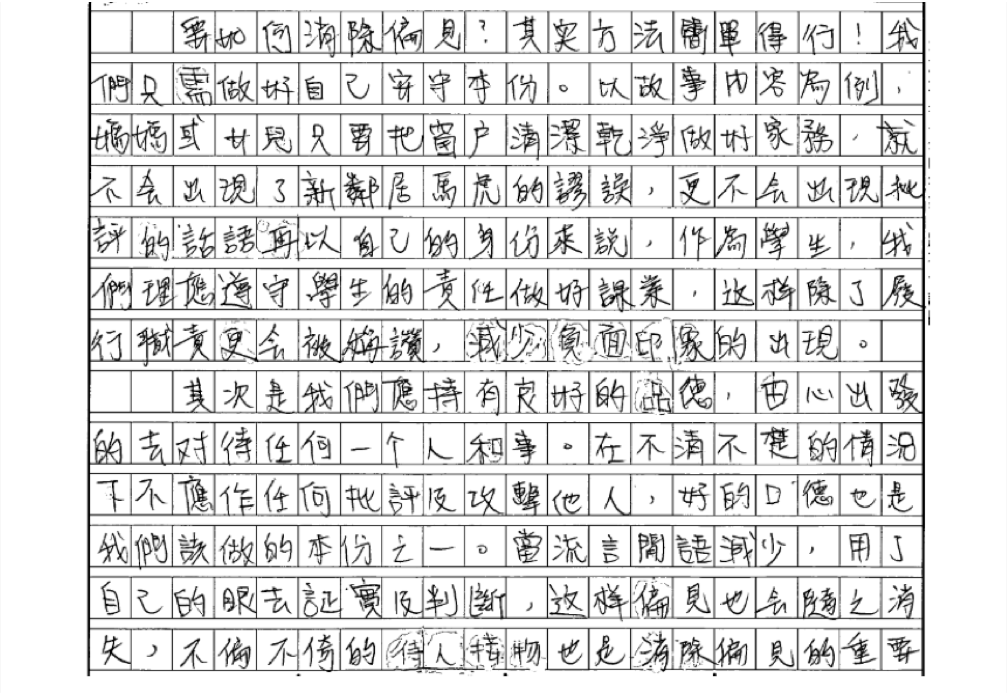 要如何消除偏見?其实方法簡單得行!我
們只需做好自己安守本份。以故事内容為例,
媽媽或女兒只要把窗户清潔乾淨做好家務,就
不会出現了新鄰居馬虎的謬誤,更不会出現批
評的話語再以自己的身份來說,作為學生,我
們理應遵守學生的責任做好課業,这样除了履
行職責更会被稱讚,減少負面印象的出現。
其次是我們應持有良好的品德,由心出發
的去对待任何一个人和事。在不清不楚的情況
下不應作任何批評及攻擊他人,好的口德也是
我們該做的本份之一。當流言閒語減少,用了
自己的眼去証實及判斷,这样偏見也会隨之消
失,不偏不倚的待人接物也是消除偏見的重要